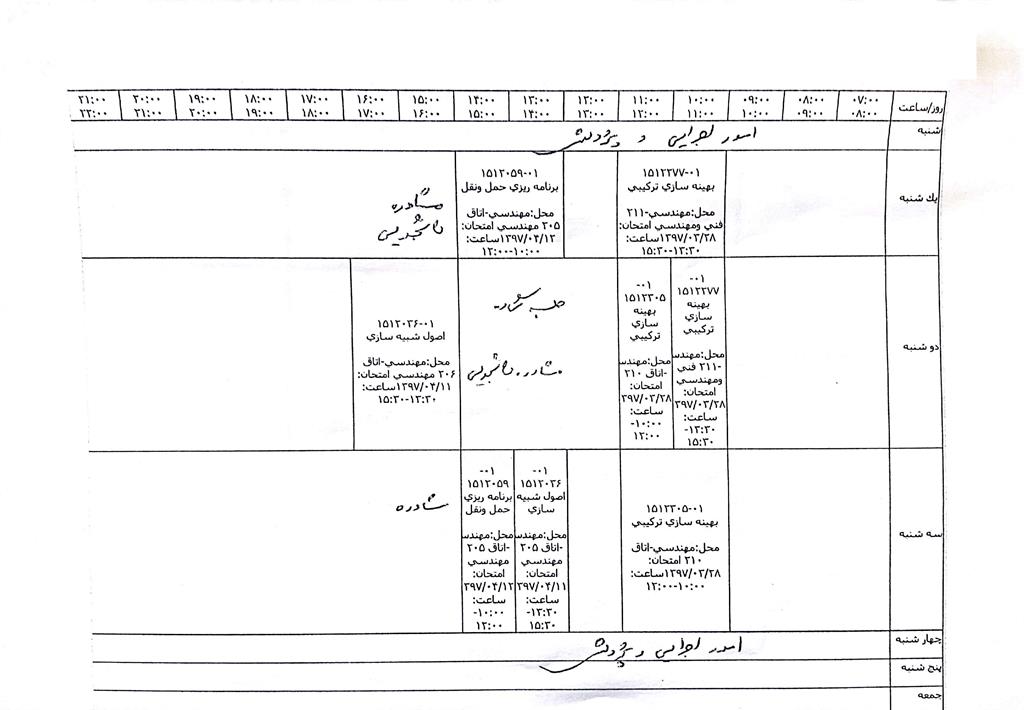 روز/ساعت
۰۷:۰۰ ۰۸:۰۰
۰۸:۰۰ ۰۹:۰۰
۰۹:۰۰ ۱۰:۰۰
۱۰:۰۰ ۱۱:۰۰
۱۱:۰۰ ۱۲:۰۰
۱۲:۰۰ ۱۳:۰۰
۱۳:۰۰ ۱۴:۰۰
۱۴:۰۰ ۱۵:۰۰
۱۵:۰۰ ۱۶:۰۰
۱۶:۰۰ ۱۷:۰۰
۱۷:۰۰ ۱۸:۰۰
۱۸:۰۰ ۱۹:۰۰
۱۹:۰۰ ۲۰:۰۰
۲۰:۰۰ ۲۱:۰۰
۲۱:۰۰ ۲۲:۰۰
شنبه
امور اجرایی و پژوهش
يك شنبه
۱۵۱۲۲۷۷-۰۱
بهينه سازي تركيبي
محل:مهندسي-۲۱۱
فني ومهندسي امتحان:
۱۳۹۷/۰۳/۲۸ساعت:
۱۵:۳۰-۱۳:۳۰
۱۵۱۲۰۵۹-۰۱
برنامه ريزي حمل ونقل
محل:مهندسي-اتاق
۲۰۵ مهندسي امتحان:
۱۳۹۷/۰۴/۱۲ساعت:
۱۲:۰۰-۱۰:۰۰
مشاوره
دانشجویی
دو شنبه
-۰۱
۱۵۱۲۲۷۷
بهينه
سازي
تركيبي
محل:مهندس
-۲۱۱ فني
ومهندسي
امتحان:
۳۹۷/۰۳/۲۸
ساعت:
-۱۳:۳۰
۱۵:۳۰
-۰۱
۱۵۱۲۳۰۵
بهينه
سازي
تركيبي
محل:مهندس
-اتاق ۲۱۰
امتحان:
۳۹۷/۰۳/۲۸
ساعت:
-۱۰:۰۰
۱۲:۰۰
مشاوره دانشجویی
۱۵۱۲۰۳۶-۰۱
اصول شبيه سازي
محل:مهندسي-اتاق
۲۰۶ مهندسي امتحان:
۱۳۹۷/۰۴/۱۱ساعت:
۱۵:۳۰-۱۳:۳۰
سه شنبه
۱۵۱۲۳۰۵-۰۱
بهينه سازي تركيبي
محل:مهندسي-اتاق
۲۱۰ امتحان:
۱۳۹۷/۰۳/۲۸ساعت:
۱۲:۰۰-۱۰:۰۰
-۰۱
۱۵۱۲۰۳۶
اصول شبيه
سازي
محل:مهندس
-اتاق ۲۰۵
مهندسي
امتحان:
۳۹۷/۰۴/۱۱
ساعت:
-۱۳:۳۰
۱۵:۳۰
-۰۱
۱۵۱۲۰۵۹
برنامه ريزي
حمل ونقل
محل:مهندس
-اتاق ۲۰۵
مهندسي
امتحان:
۳۹۷/۰۴/۱۲
ساعت:
-۱۰:۰۰
۱۲:۰۰
مشاوره
چهار شنبه
امور اجرایی و پژوهش
پنج شنبه
جمعه